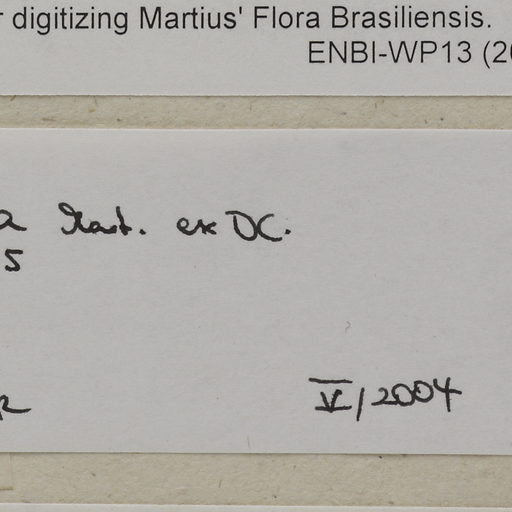 r digitizing Martius' Flora Brasiliensis.
ENBI-WP13 (20
a Mart. ex DC.
5
V/2004